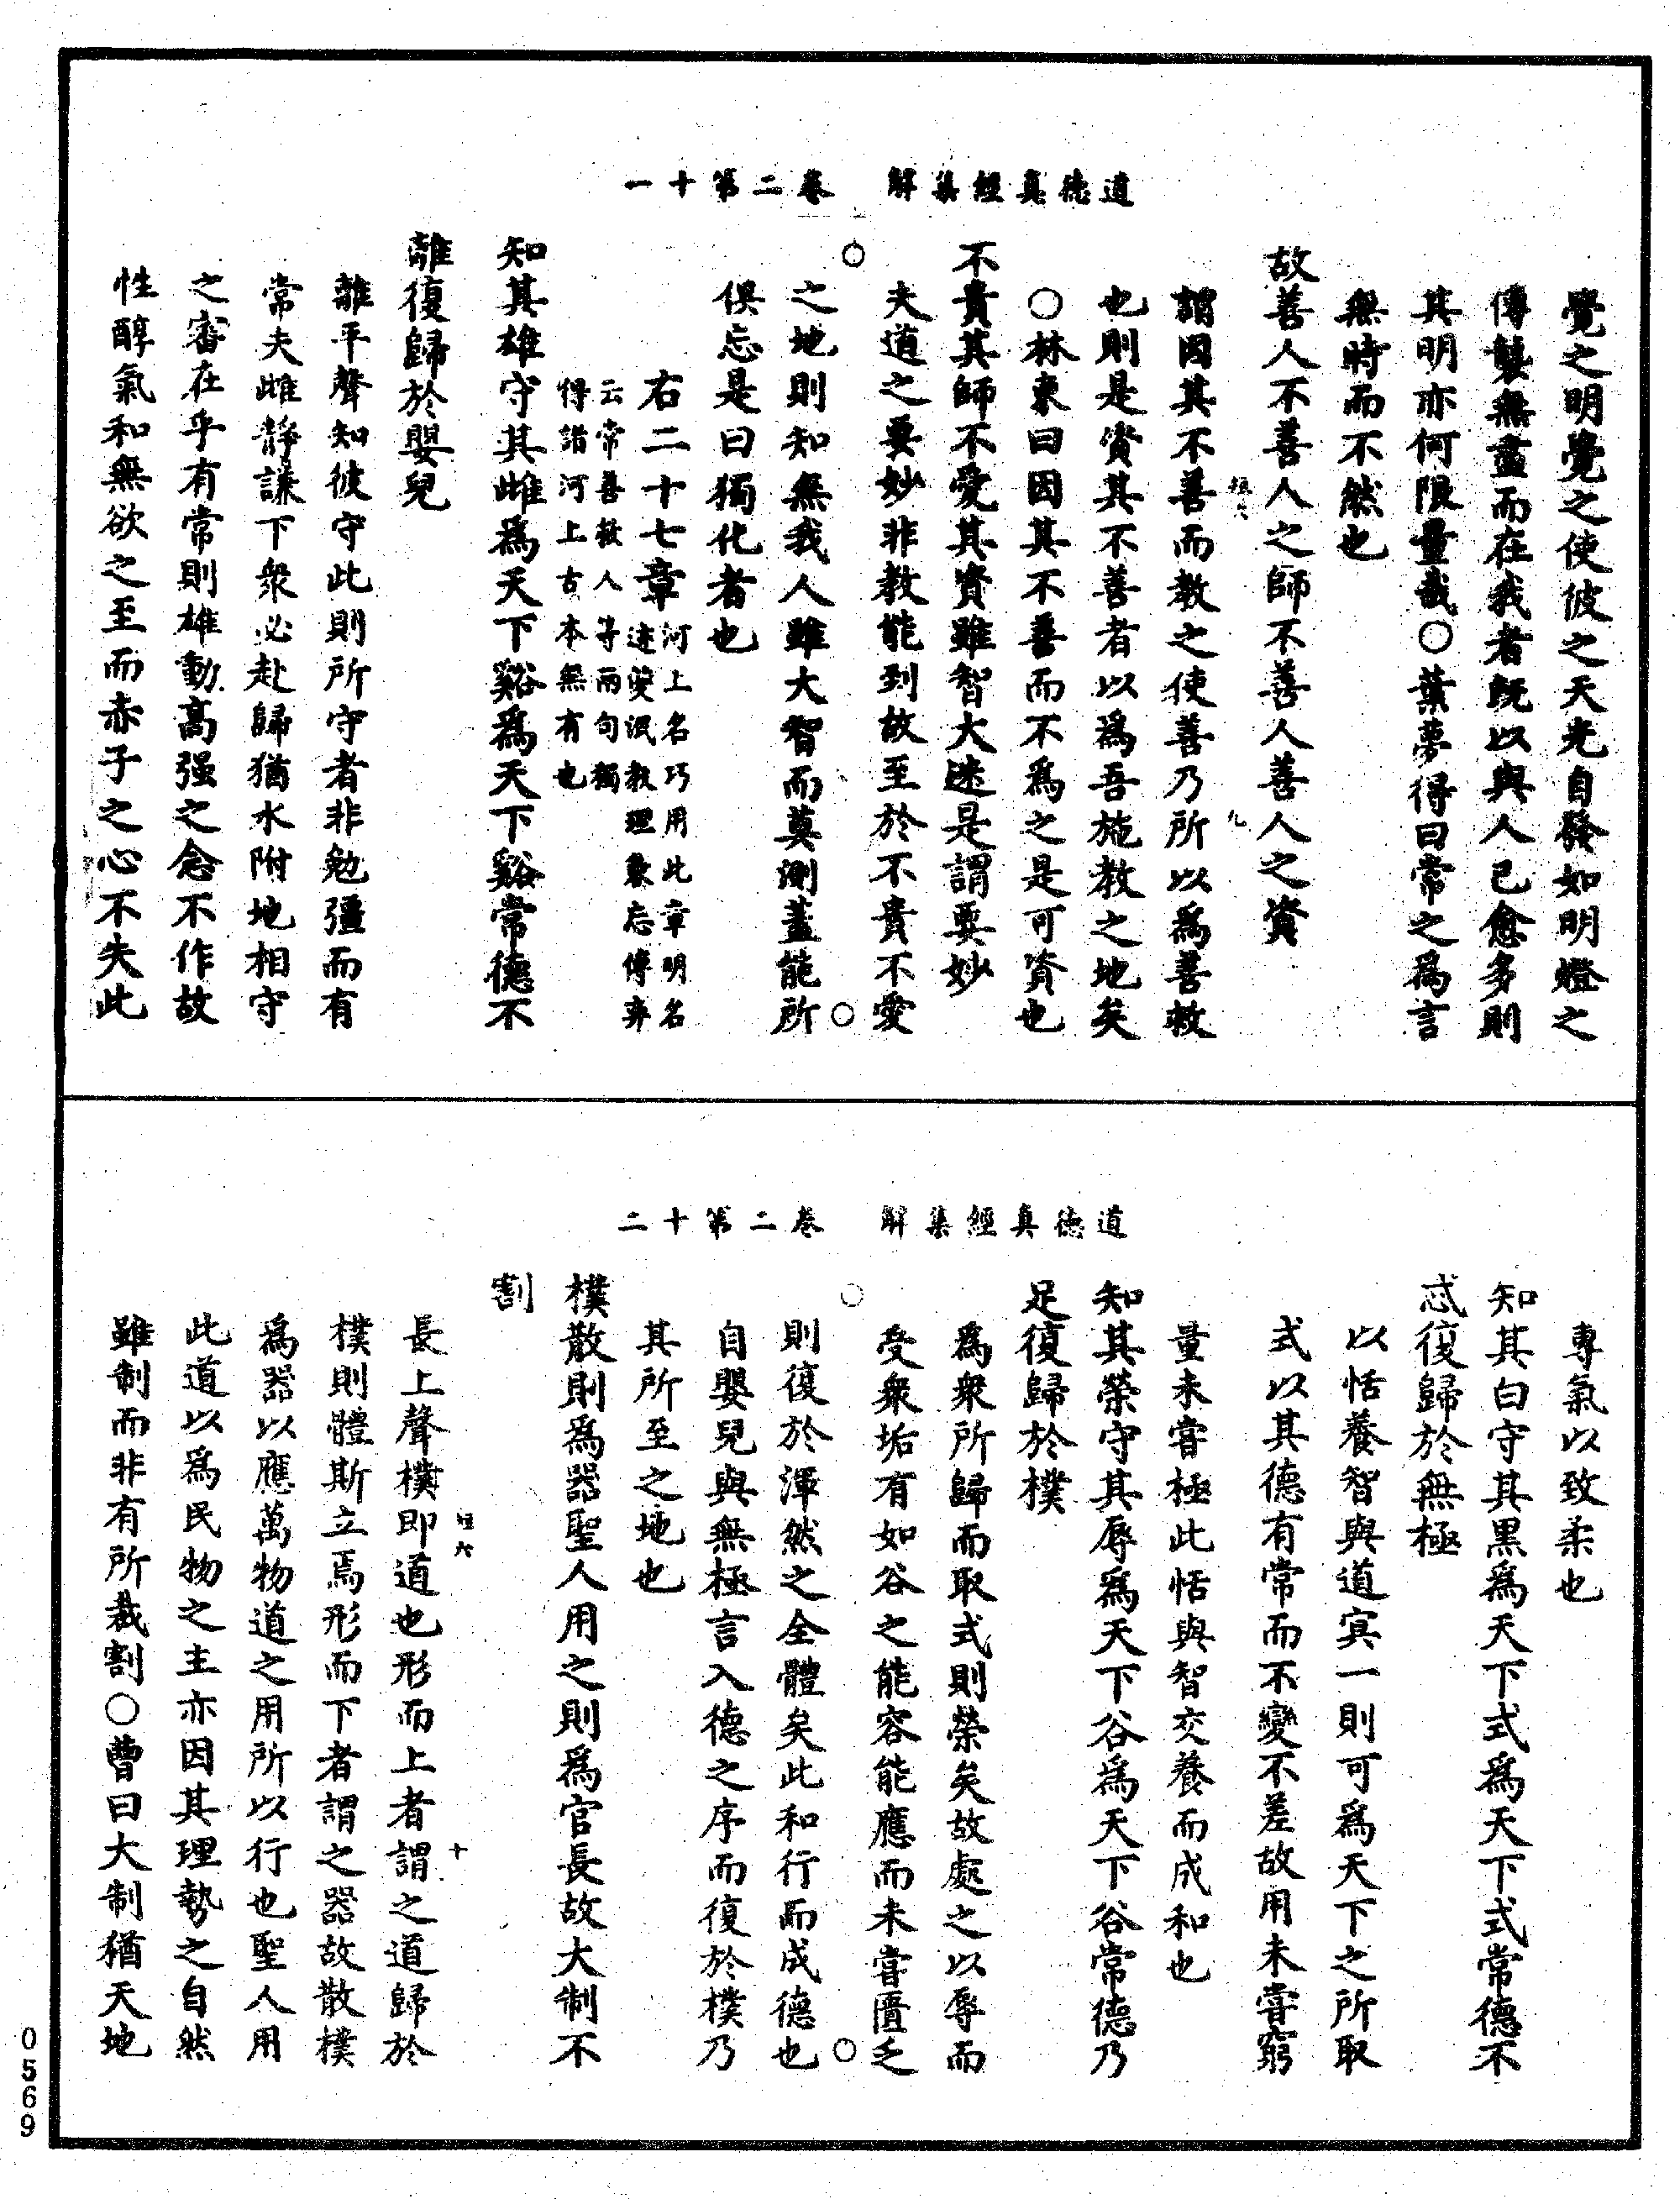 道德真經集解　卷二第十一
覺之明覺之使彼之天光自發如明燈之
傳襲無盡而在我者既以與人己愈多則
其明亦何限量哉○葉夢得曰常之爲言
無時而不然也
故善人不善人之師不善人善人之資
謂因其不善而教之使善乃所以爲善救
也則是資其不善者以爲吾施教之地矣
○林東曰因其不善而不爲之是可資也
不貴其師不愛其資雖智大迷是謂要妙
夫道之要妙非教能到故至於不貴不愛
之地則知無我人雖大智而莫測蓋能所
俱忘是曰獨化者也
右二十七章河上名巧用此章明名
迹雙泯教理兼忘傳弈
云常善救人等兩句獨
得諸河上古本無有也
知其雄守其雌爲天下谿爲天下谿常德不
離復歸於嬰兒
離平聲知彼守此則所守者非勉彊而有
常夫雌靜謙下衆必赴歸猶水附地相守
之審在乎有常則雄動高强之念不作故
性醇氣和無欲之至而赤子之心不失此
道德真經集解　卷二第十二
專氣以致柔也
知其白守其黑爲天下式爲天下式常德不
忒復歸於無極
以恬養智與道冥一則可爲天下之所取
式以其德有常而不變不差故用未嘗窮
量未嘗極此恬與智交養而成和也
知其榮守其辱爲天下谷爲天下谷常德乃
足復歸於樸
爲衆所歸而取式則榮矣故處之以辱而
受衆垢有如谷之能容能應而未嘗匱乏
則復於渾然之全體矣此和行而成德也
自嬰兒與無極言入德之序而復於樸乃
其所至之地也
樸散則爲器聖人用之則爲官長故大制不
割
長上聲樸即道也形而上者謂之道歸於
樸則體斯立焉形而下者謂之器故散樸
爲器以應萬物道之用所以行也聖人用
此道以爲民物之主亦因其理勢之自然
雖制而非有所裁割○曹曰大制猶天地
0569